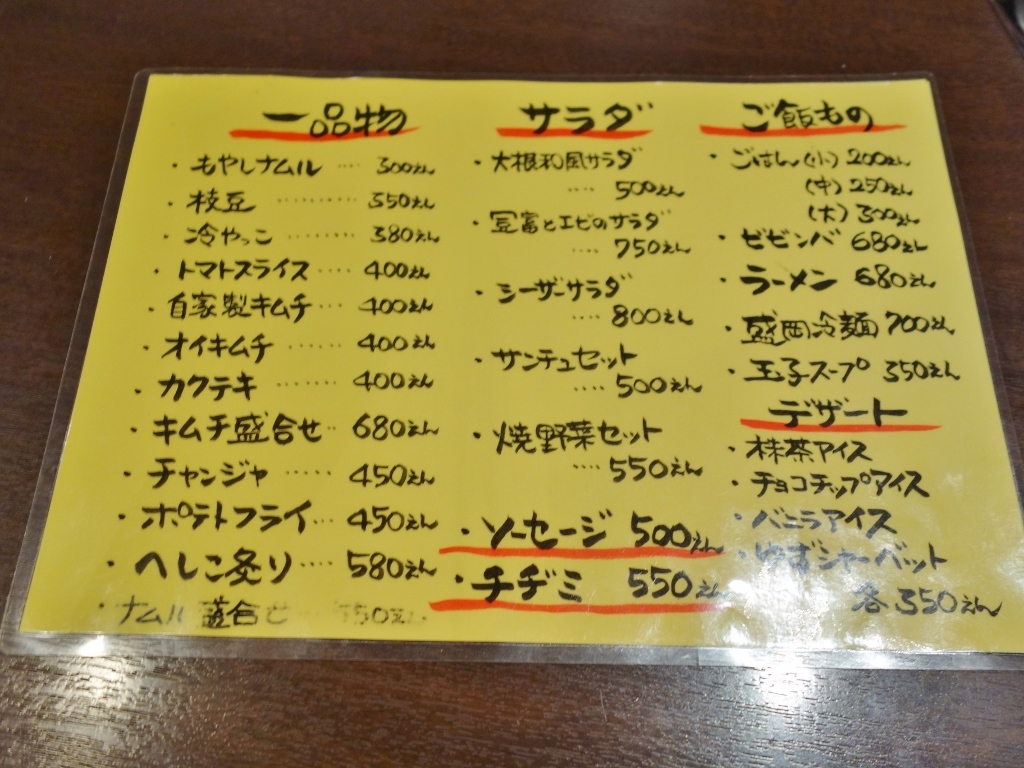 一品物
・もやしナムル ‥‥ 300えん
・枝豆 ‥‥‥‥ 350えん
・冷やっこ ‥‥‥‥ 380えん
・トマトスライス ‥‥ 400えん
・自家製キムチ ‥‥ 400えん
・オイキムチ ‥‥‥ 400えん
・カクテキ ‥‥‥ 400えん
・キムチ盛合せ ‥ 680えん
・チャンジャ ‥‥‥ 450えん
・ポテトフライ ‥ 450えん
・へしこ炙り ‥‥ 580えん
・ナムル盛合せ
サラダ
・大根和風サラダ
‥‥ 500えん
・豆富とエビのサラダ
‥‥ 750えん
・シーザーサラダ
‥‥ 800えん
・サンチュセット
‥‥ 500えん
・焼野菜セット
‥‥ 550えん
・ソーセージ 500えん
・チヂミ 550えん
ご飯もの
・ごはん(小) 200えん
(中) 250えん
(大) 300えん
・ビビンバ 680えん
・ラーメン 680えん
・盛岡冷麺 700えん
・玉子スープ 350えん
デザート
・抹茶アイス
・チョコチップアイス
・バニラアイス
・ゆずシャーベット
各350えん